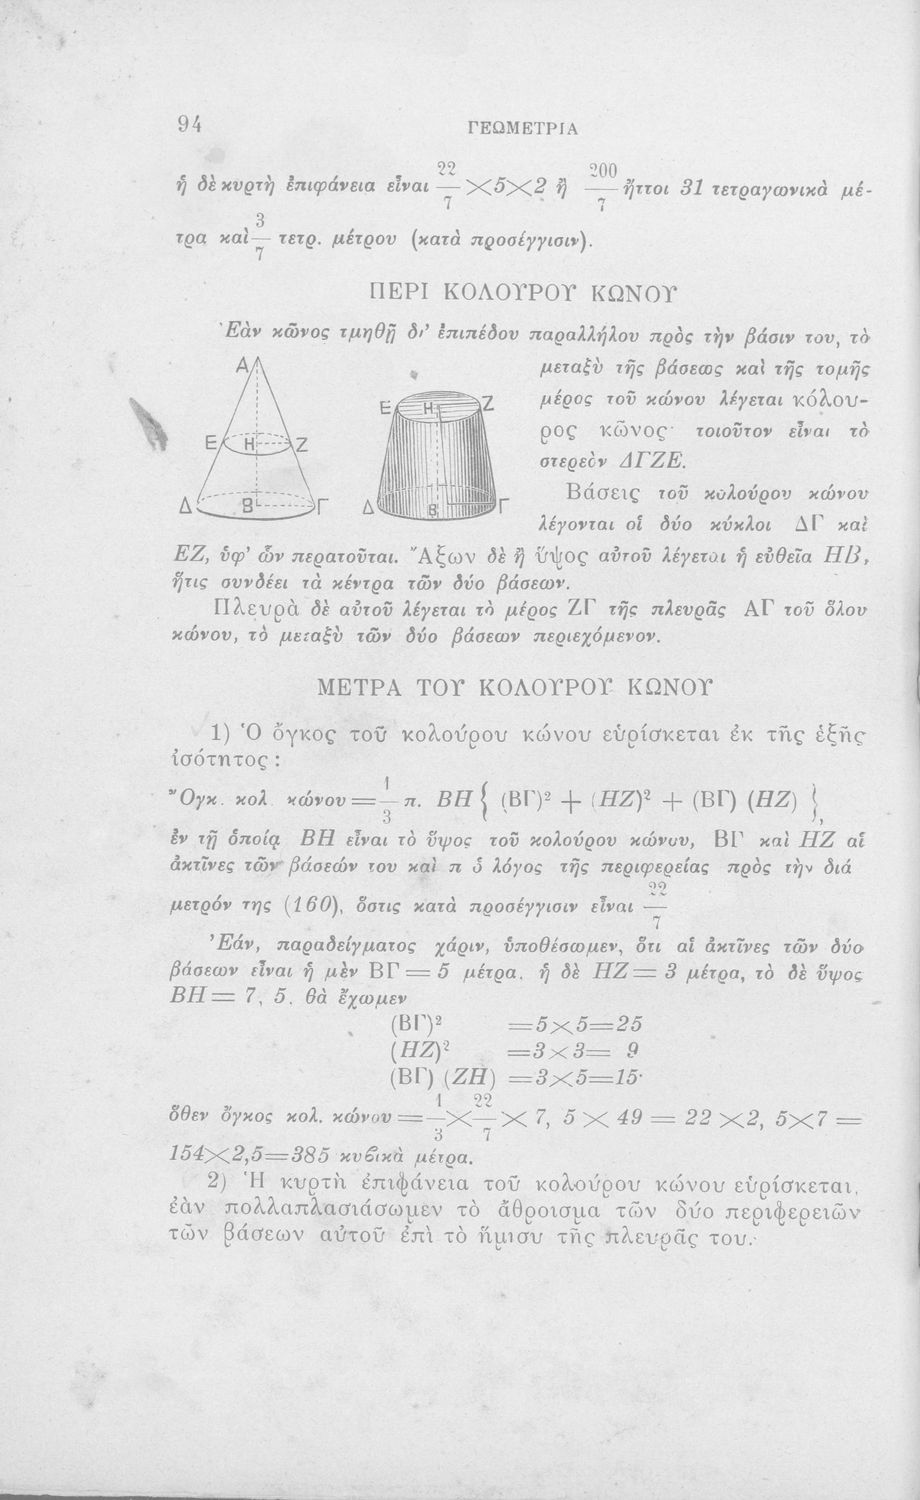 94 ΓΕΩΜΕΤΡΙΑ
ἡ δὲ κυρτὴ ἐπιφάνεια εἶναι 22/7 ×5×2 ἢ 200/7 ἤτοι 31 τετραγωνικὰ μέ-
τρα καὶ 3/7 τετρ. μέτρου (κατὰ προσέγγισιν).
ΠΕΡΙ ΚΟΛΟΥΡΟΥ ΚΩΝΟΥ
Ἐὰν κῶνος τμηθῇ δι’ ἐπιπέδου παραλλήλου πρὸς τὴν βάσιν του, τὸ
μεταξὺ τῆς βάσεως καὶ τῆς τομῆς
μέρος τοῦ κώνου λέγεται κόλου-
ρος κῶνος· τοιοῦτον εἶναι τὸ
στερεὸν ΔΓΖΕ.
Α
Ε Η Ζ
Δ Β Γ
Ε Η Ζ
Δ Β Γ
Βάσεις τοῦ κολούρου κώνου
λέγονται οἱ δύο κύκλοι ΔΓ καὶ
ΕΖ, ὑφ’ ὧν περατοῦται. Ἄξων δὲ ἢ ὕψος αὐτοῦ λέγεται ἡ εὐθεῖα ΗΒ,
ἥτις συνδέει τὰ κέντρα τῶν δύο βάσεων.
Πλευρὰ δὲ αὐτοῦ λέγεται τὸ μέρος ΖΓ τῆς πλευρᾶς ΑΓ τοῦ ὅλου
κώνου, τὸ μεταξὺ τῶν δύο βάσεων περιεχόμενον.
ΜΕΤΡΑ ΤΟΥ ΚΟΛΟΥΡΟΥ ΚΩΝΟΥ
1) Ὁ ὄγκος τοῦ κολούρου κώνου εὑρίσκεται ἐκ τῆς ἑξῆς
ἰσότητος:
Ὄγκ. κολ κώνου = 1/3 π. ΒΗ { (ΒΓ)² + (ΗΖ)² + (ΒΓ) (ΗΖ) },
ἐν τῇ ὁποίᾳ ΒΗ εἶναι τὸ ὕψος τοῦ κολούρου κώνου, ΒΓ καὶ ΗΖ αἱ
ἀκτῖνες τῶν βάσεών του καὶ π ὁ λόγος τῆς περιφερείας πρὸς τὴν διά
μετρόν της (160), ὅστις κατὰ προσέγγισιν εἶναι 22/7
Ἐάν, παραδείγματος χάριν, ὑποθέσωμεν, ὅτι αἱ ἀκτῖνες τῶν δύο
βάσεων εἶναι ἡ μὲν ΒΓ = 5 μέτρα, ἡ δὲ ΗΖ = 3 μέτρα, τὸ δὲ ὕψος
ΒΗ = 7, 5. θὰ ἔχωμεν
(ΒΓ)² =5×5=25
(ΗΖ)² =3×3= 9
(ΒΓ) (ΖΗ) =3×5=15·
ὅθεν ὄγκος κολ. κώνου = 1/3 × 22/7 × 7, 5 × 49 = 22 ×2, 5×7 =
154×2,5=385 κυβικὰ μέτρα.
2) Ἡ κυρτὴ ἐπιφάνεια τοῦ κολούρου κώνου εὑρίσκεται,
ἐὰν πολλαπλασιάσωμεν τὸ ἄθροισμα τῶν δύο περιφερειῶν
τῶν βάσεων αὐτοῦ ἐπὶ τὸ ἥμισυ τῆς πλευρᾶς του.